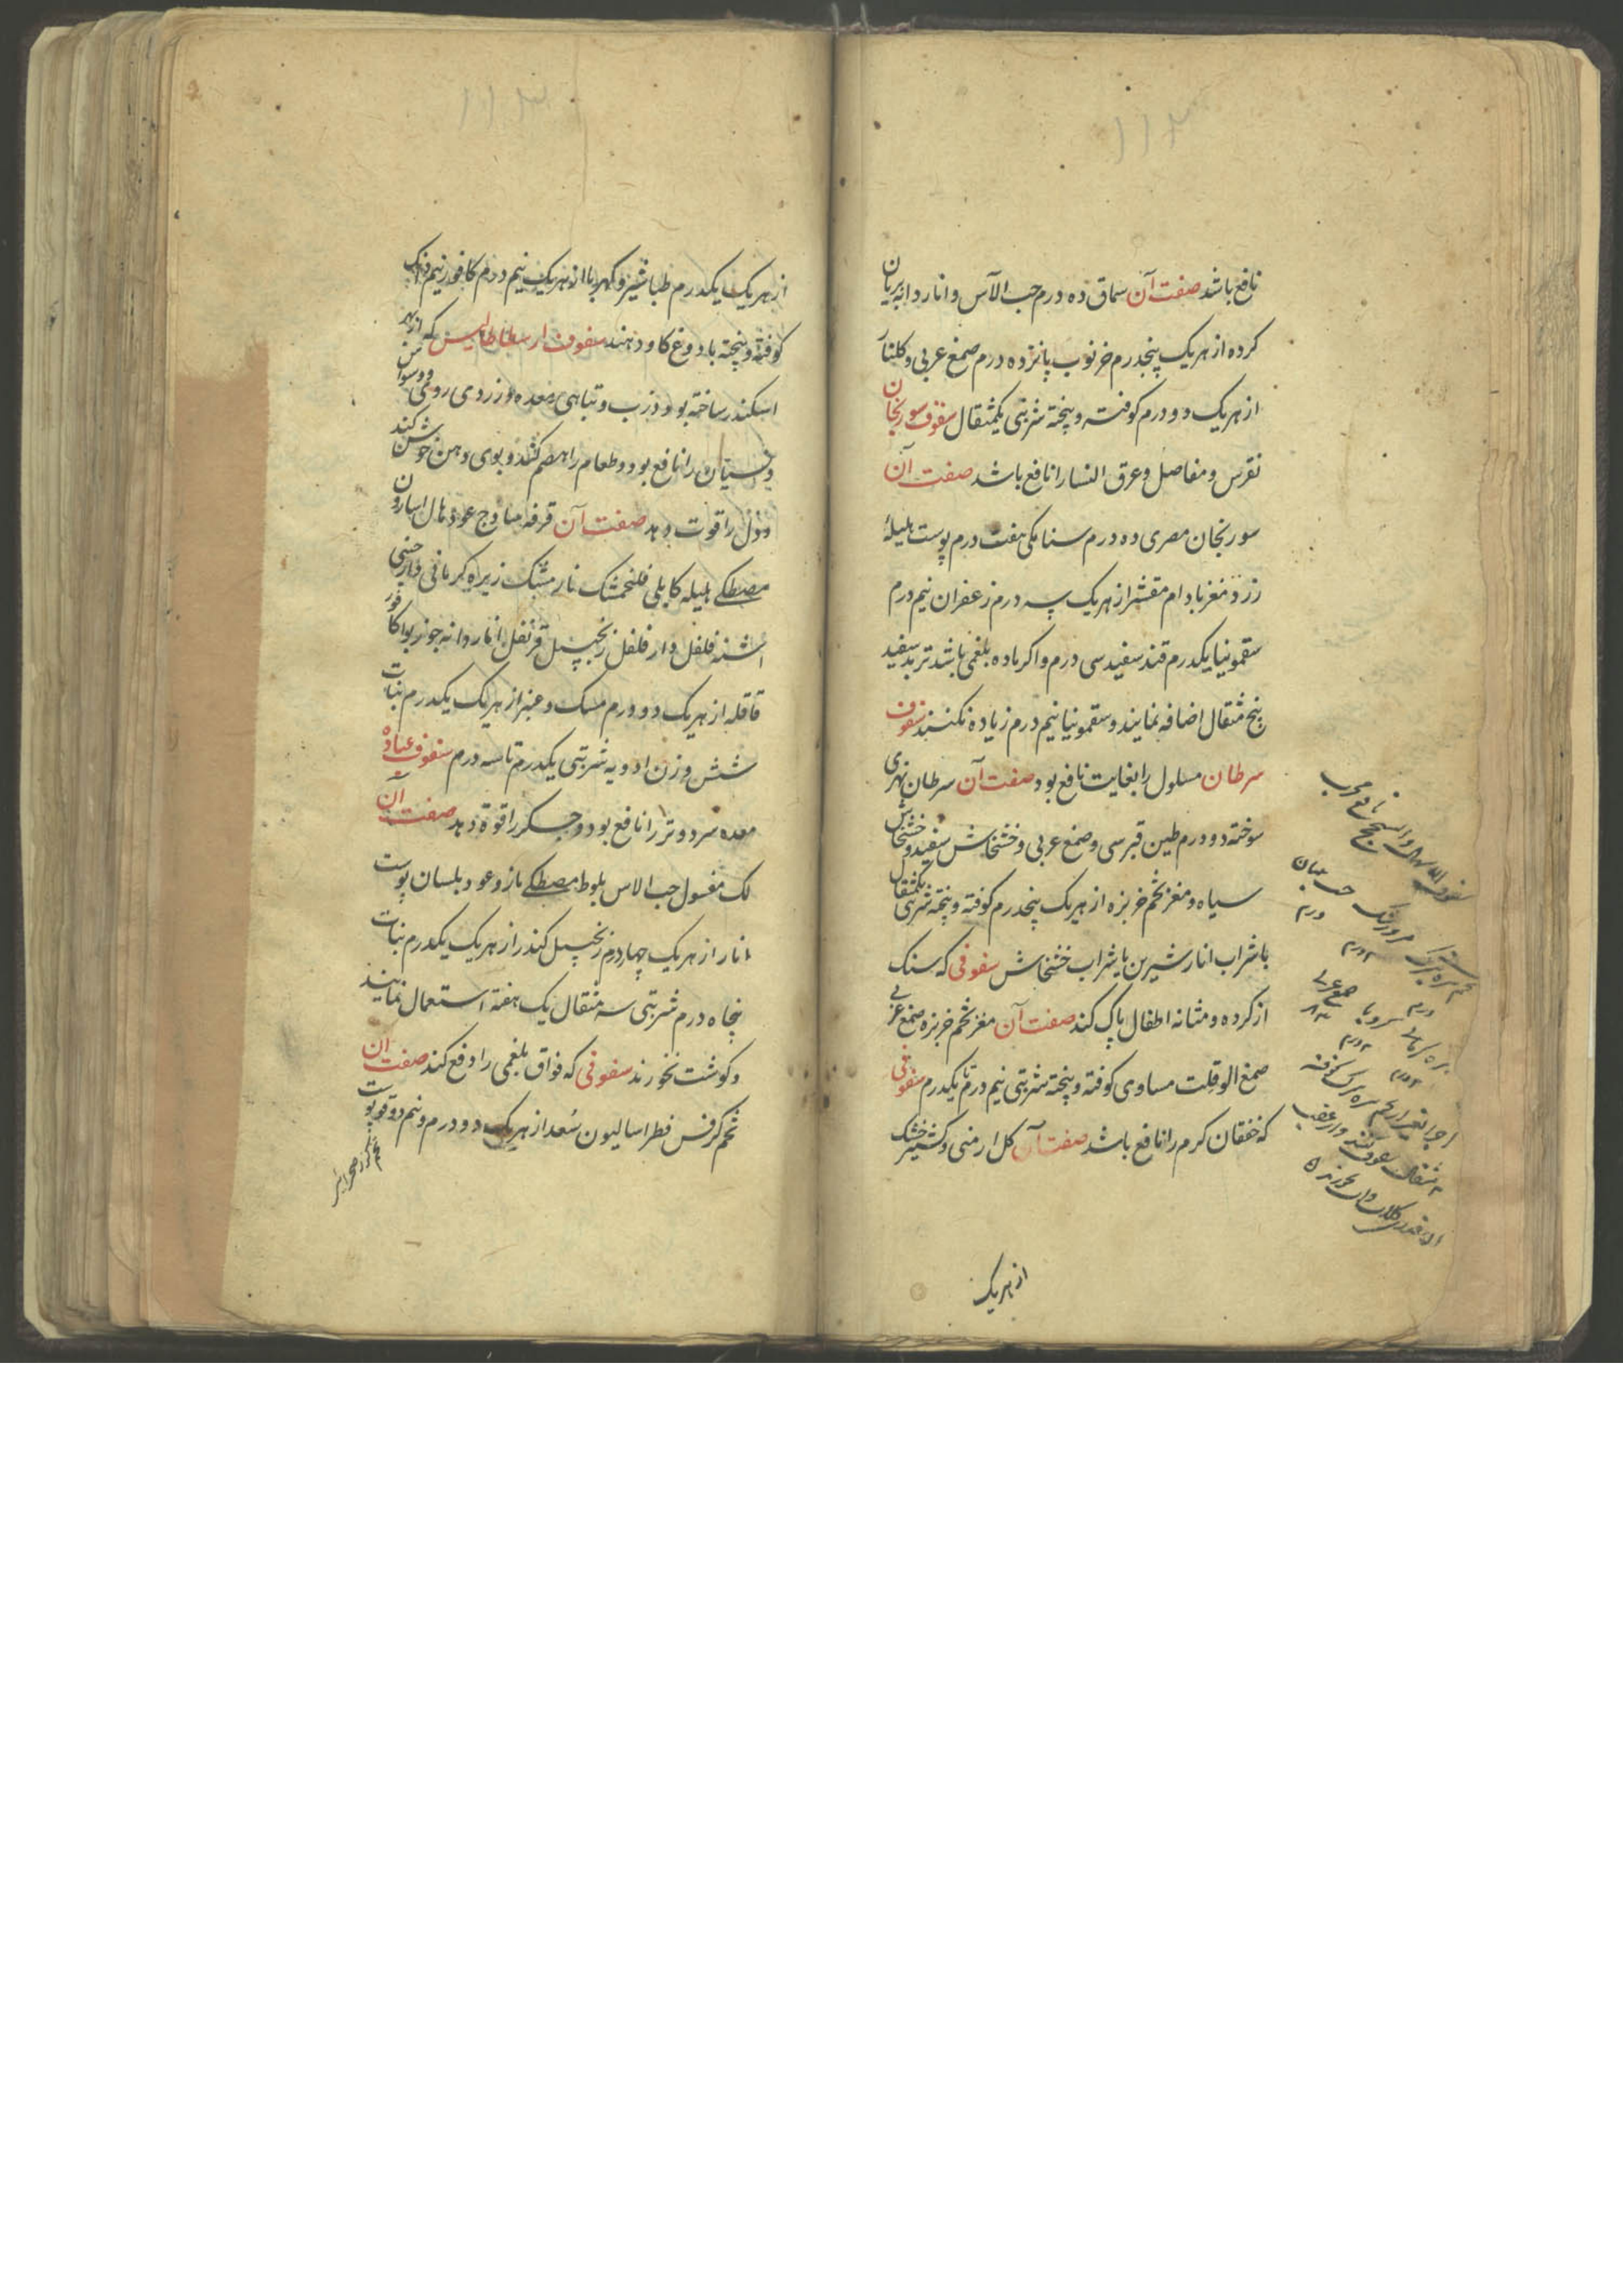 ۱۱۲
نافع باشد صفت آن سماق ده درم حب الآس و انار دانه بریان
کرده از هر یک پنجدرم خرنوب پانزده درم صمغ عربی و کلنار
از هر یک دو درم کوفته و پخته شربتی یکمثقال سفوف سورنجان
نقرس و مفاصل و عرق النسا را نافع باشد صفت آن
سورنجان مصری ده درم سنا مکی هفت درم پوست هلیلهٔ
زرد مغز بادام مقشر از هر یک سه درم زعفران نیم درم
سقمونیا یکدرم قند سفید سی درم و اکر ماده بلغمی باشد تربد سفید
پنج مثقال اضافه نمایند و سقمونیا نیم درم زیاده نکنند سفوف
سرطان مسلول را بغایت نافع بود صفت آن سرطان نهری
سوخته دو درم طین قبرسی و صمغ عربی و خشخاش سفید و خشخاش
سیاه و مغز تخم خربزه از هر یک پنجدرم کوفته و پخته شربتی یکمثقال
با شراب انار شیرین یا شراب خشخاش سفوفی که سنک
از کرده و مثانه اطفال پاک کند صفت آن مغز تخم خربزه صمغ عربی
صمغ الو قلت مساوی کوفته و پخته شربتی نیم درم تا یکدرم سفوفی
که خفقان کرم را نافع باشد صفت آن کل ارمنی و کشنیز خشک
از هر یک
نافع مجرب
درم
صمغ عربی
۲ درم
۱۱۳
از هر یک یکدرم طباشیر و کهربا از هر یک نیم درم کافور نیم دنک
کوفته و پخته با دوغ کاو دهند سفوف ارسطاطالیس که از بهر
اسکندر ساخته بود و ذرب و تباهی معده و زردی روی و وسواس
و نسیان را نافع بود و طعام را هضم کند و بوی دهن خوش کند
و دل را قوت دهد صفت آن قرفه ساذج عود هال اسارون
مصطکی هلیله کابلی فلنجمشک نارمشک زیره کرمانی دارچینی
اشنه فلفل دار فلفل زنجبیل قرنفل انار دانه جوز بوا کافور
قاقله از هر یک دو درم مسک و عنبر از هر یک یکدرم نبات
شش وزن ادویه شربتی یکدرم تا سه درم سفوف عباده
معده سرد و تر را نافع بود و جکر را قوة دهد صفت آن
لک مغسول حب الاس بلوط مصطکی مازو عود بلسان پوست
انار از هر یک چهار درم زنجبیل کندر از هر یک یکدرم نبات
پنجاه درم شربتی سه مثقال یک هفته استعمال نمایند
و کوشت نخورند سفوفی که فواق بلغمی را دفع کند صفت آن
تخم کرفس فطراسالیون سعد از هر یک دو درم و نیم دوقو پوست